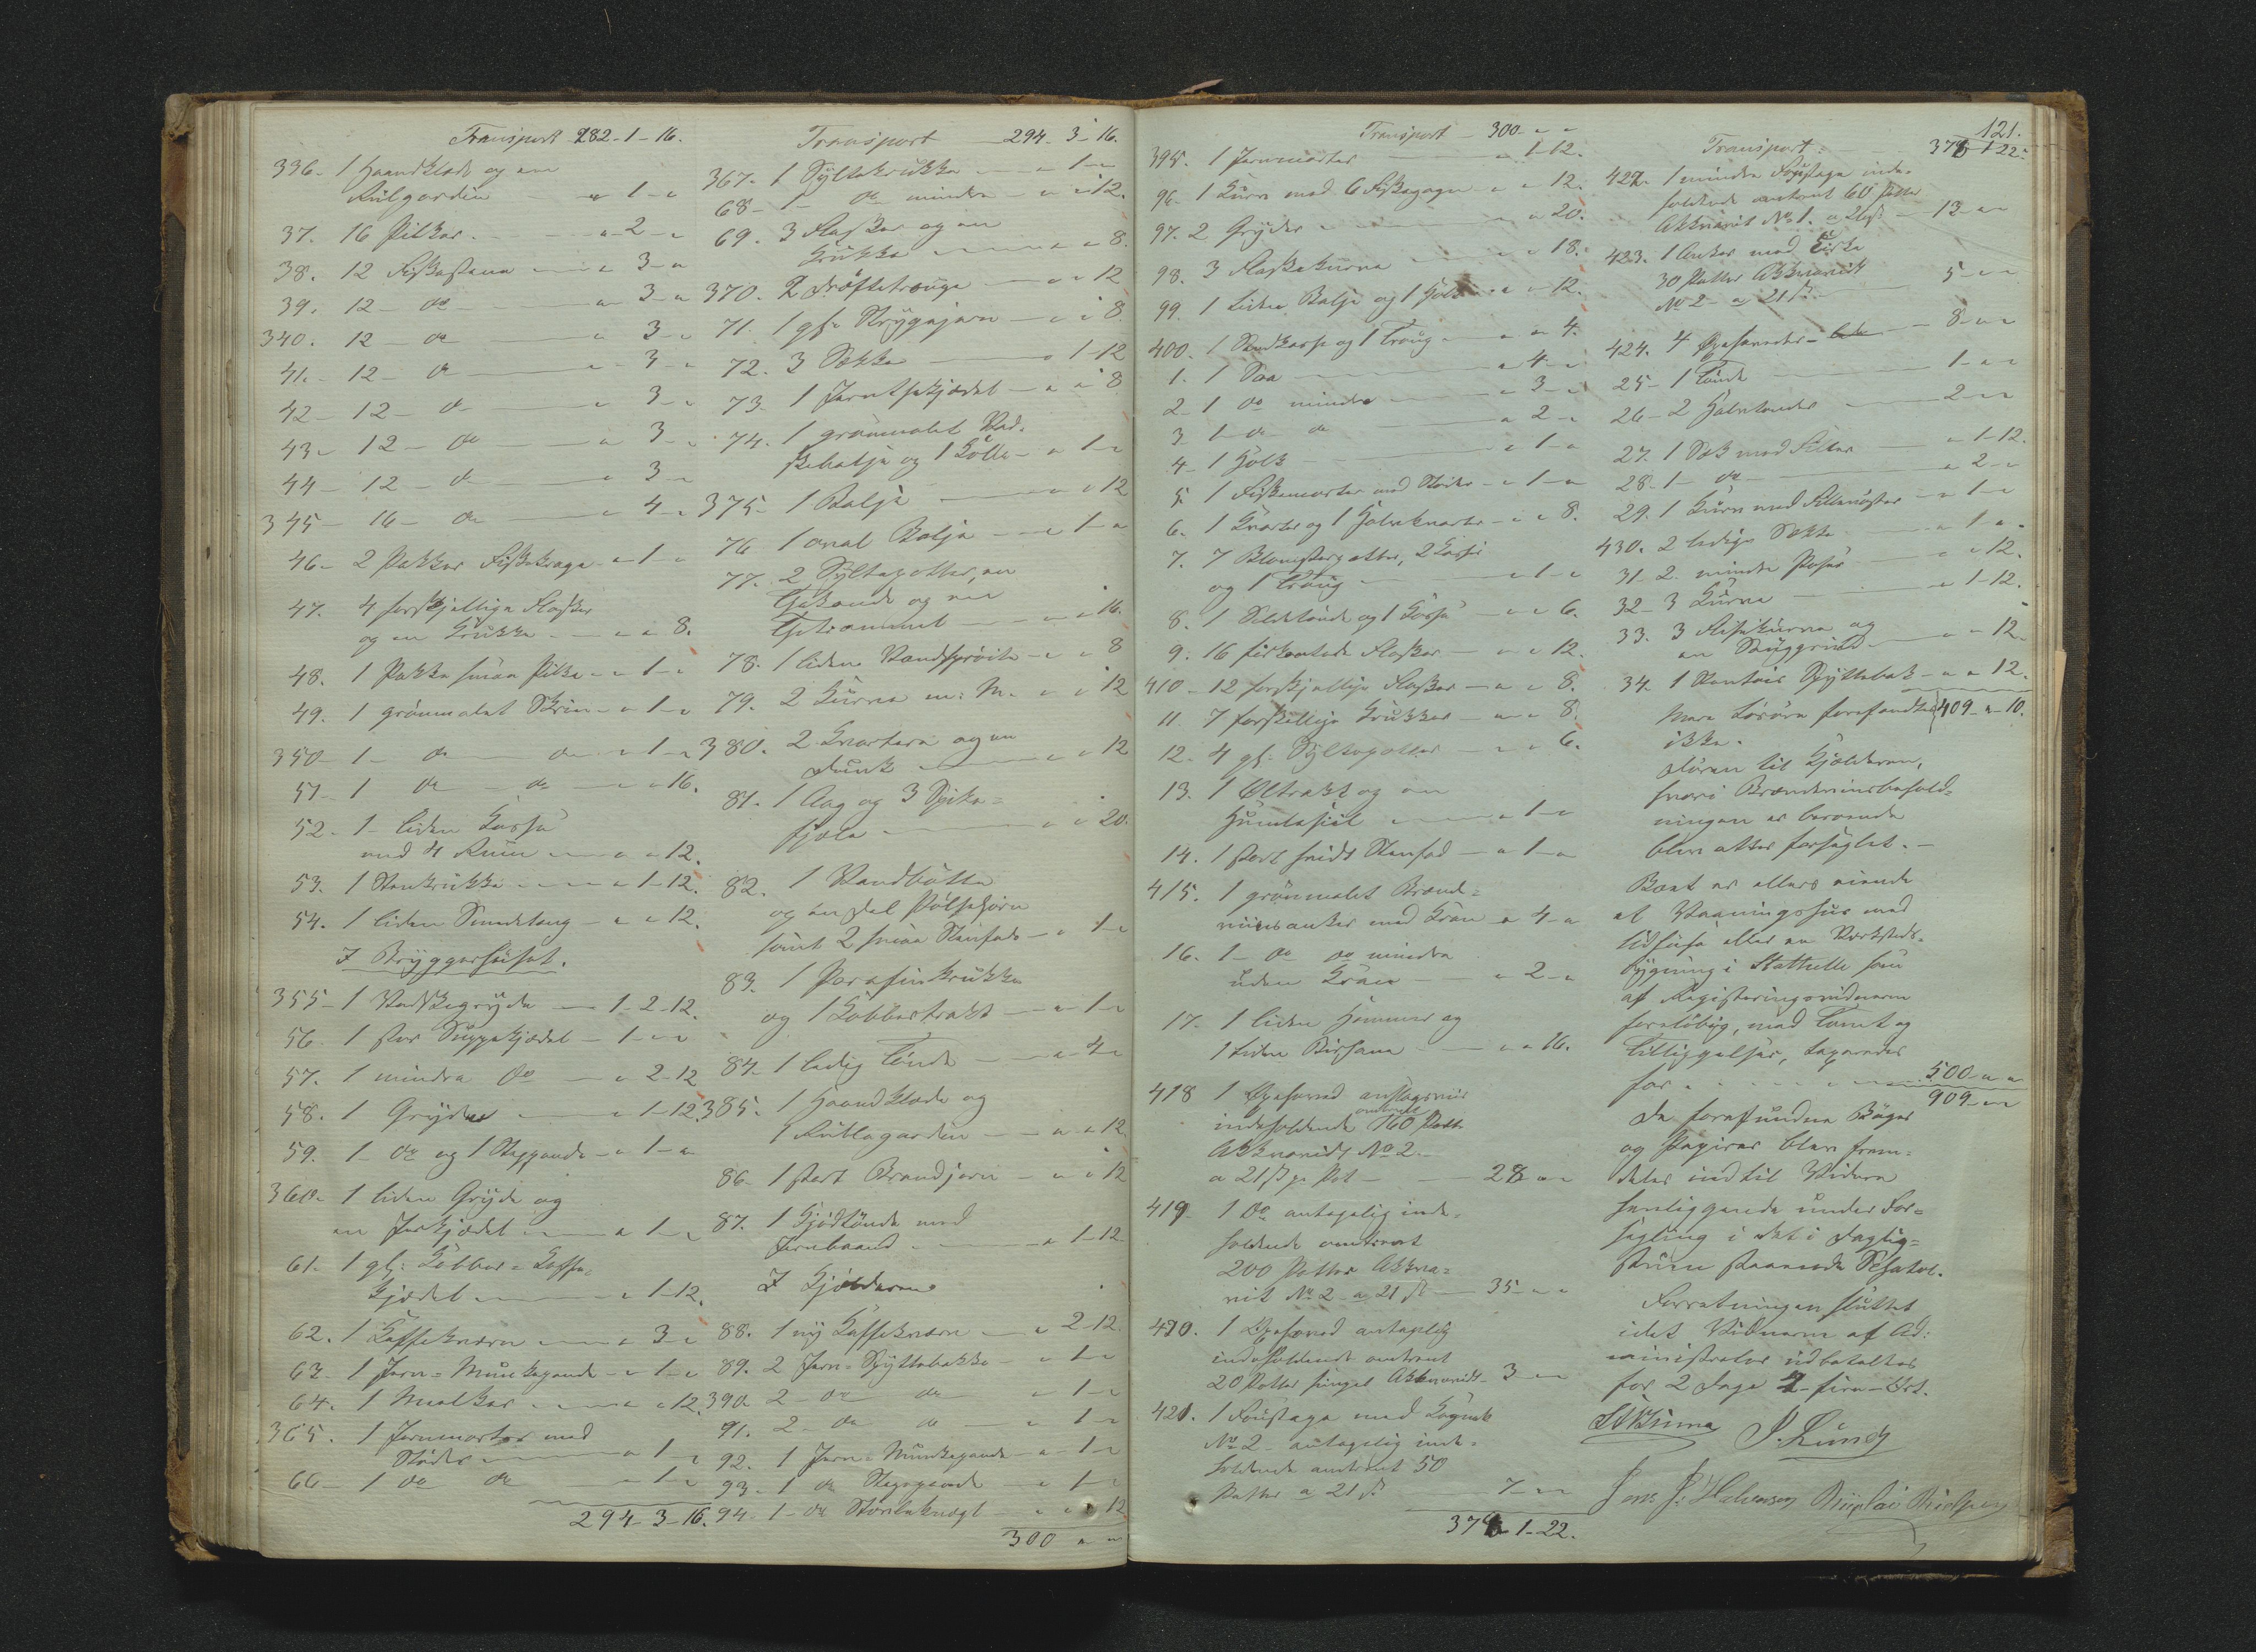 Transport 282-1-16.
336- 1 Haandklæde og en
Rulgardin - " 1 - "
37. 16 Pilker - " 2 - "
38. 12 Fiskestene - " 3 - "
39. 12 - do - " 3 - "
340. 12 - do - " 3 - "
41. - 12 - do - " 3 - "
42 - 12 - do - " 3 - "
43 - 12 - do - " 3 - "
44 - 12 - do - " 3 - "
345 - 16 - do - " 4 - "
46 - 2 Pakker Fiskekroge - " 1 - "
47. 4 forskjellige Flasker
og en Krukke - " " 8.
48. 1 Pakke smaa Pilke - " 1 - "
49. 1 grönmalet Skrin - " 1 - "
350 - 1 - do do - " 1 - "
51 - 1 do - do - " " 16.
52 - 1 - liden Kasse
med 4 Rum - " " 12.
53. 1 Stenkrukke - " 1-12.
54. 1 liden - " " 12.
I Bryggerhuset.
355 - 1 Vadskegryde - 1-2-12.
56. 1 stor Suppekjedel - 1 - " "
57. 1 mindre do - " 2-12
58. 1 Gryde - " 1-12
59. 1 - do og 1 Stegpande - " 1 - "
360. 1 liden Gryde og
en Jernkjedel - " 1 - "
61 - 1 gl: Kobber-Kaffe-
kjedel - " 1-12.
62. 1 Kaffekværn - " 3 - "
63 - 1 Jern-Munkepande - " 1 - "
64. 1 Melkar - " " 12
365. 1 Jernmorter med
Støder - " 1 - "
66 - 1 do do - " 1 - "
294-3-16.
Transport - 294-3-16.
367. 1 Syltekrukke - " 1 - "
68 - 1 - do mindre - " " 12.
69. 3 Flasker og en
Krukke - " " 8.
370. 2 Dröftetrouge - " " 12
71. 1 gl. Strygejern - " " 8
72. 3 Sække - " 1-12
73. 1 Jernthekjedel - " " 8
74. 1 grönmalet Vad-
skebalje og 1 Bötte - " 1 - "
375 - 1 Balje - " " 12
76 1 oval Balje - " 1 - "
77. 2 Syltepotter, en
Thekande og en
Thetrommel - " " 16.
78. 1 liden Vandspröite - " " 8
79. 2 Kurve m: M. - " " 12
380. 2 Kvartere og en
Dunk - " " 12
81. 1 Aag og 3
- " " 20.
82. 1 Vandbötte
og en Del Pölsehorn
samt 2 smaa Stenfade - " 1 - "
83. 1 Parafinkrukke
og 1 Kobbertrakt - " 1 - "
84. 1 ledig Tönde - " 4 - "
385. 1 Haandklæde og
1 Rullegardin - " " 12
86. 1 stort Brændjern - " " 12
87. 1 Kjödtönde med
Jernbaand - " 1-12
I Kjælderen
88. 1 ny Kaffekværn - " 2-12.
89. 2 Jern-Spyttebakke - " 1 - "
390 2 - do do - " 1 - "
91. 2 - do do - " 1 - "
92. 1 Jern-Munkepande - " 1 - "
93 - 1 do Stegepande - " 1 - "
94. 1 - do Støvleknægt - " " 12
300 " "
Transport - 300 - " "
395. 1 Jernmorter - " 1-12.
96. 1 Kurv med 6 Fiskegogn - " " 12.
97. 2 Gryder - " " 20.
98. 3 Flaskekurve - " " 18.
99. 1 Liden Balje og 1 Holk - " " 12.
400. 1 og 1 Troug - " " 4.
1. 1 Saa - " 4 - "
2 - 1 do mindre - " 3 - "
3 1 - do do - " 2 - "
4 - 1 Holk - " 1 - "
5 1 Fiskemorter med Støder - " 1 - "
6. 1 Kvarter og 1 Halvkvarter - " " 8.
7. 7 Blomsterpotter, 2 Kasser
og 1 Troug - " 1 - "
8. 1 Sildetönde og 1 Kasse - " " 6.
9. 16 firkantede Flasker - " " 12.
410 - 12 forskjellige Flasker - " " 8.
11. 7 forskellige Krukker - " " 8.
12. 4 gl. Syltepotter - " " 6.
13. 1 Öltrakt og en
Humlesiil - " 1 - "
14. 1 stort hvidt Stenfad - " 1 - "
415. 1 grönmalet Brænde-
viinsanker med Kran - " 4 - "
16. 1 - do do mindre
uden Kran - " 2 - "
17. 1 liden Hammer og
1 Liden - " " 16.
418 1 Oxehoved antagelig
indeholdende omtrent 160 Potter
Akkevit No 2. -
a 21 ß pr Pot - 28 " "
419 1 Do antagelig inde-
holdende omtrent
200 Potter Akke-
vit No 2 a 21 ß - 35 - " "
420. 1 Oxehoved antagelig
indeholdende omtrent
20 Potter simpel Akkevit - 3 - " "
421. 1 Foustage med Kognak
No 2 - antagelig inde-
holdende omtrent 50
Potter a 21 ß - 7 - " "
374-1-22.
121.
Transport - 374-1-22.
422. 1 mindre Foustage inde-
holdende omtrent 60 Potter
Akkevit No 1. a - 13 - " "
423. 1 Anker med Cirka
30 Potter Akkevit
No 2 - a 21 ß - 5 - " "
424. 4 Oxehoveder - 8 - " "
25 - 1 Tönde - 1 - " "
26 - 2 Halvtønder - 2 - " "
27. 1 Sæk med Filler - " 1-12.
28. 1 - do - " 2 - "
29. 1 Kurv med - " 1 - "
430. 2 ledige Sække - " 1 - "
31 - 2. mindre Poser - " " 12.
32 - 3 Kurve - " 1-12.
33. 3 Fiskekurve og
en - " " 12.
34. 1 Kontoir Spyttebak - " " 12.
Mere Lösöre forefandtes 409 - " - 10.
ikke.
Dören til Kjælderen,
hvori Brændeviinsbehold-
ningen er beroende
blev atter forseglet. -
Boet er ellers eiende
et Vaaningshus med
Udhuse eller en Værksteds-
bygning i Stathelle som
af Registreringsvidnerne
foreløbig, med Tomt og
Tilliggelser, taxeredes
for - 500 - " "
909 - " "
De forefundne Böger
og Papirer blev frem-
deles indtil Videre
henliggende under For-
segling i det i Daglig-
stuen staaende Schatol.
Forretningen sluttet
idet Vidnerne af Ad-
ministrator udbetaltes
for 2 Dage 4 - fire - Ort.
J. Lund
Jens J. Halvorsen